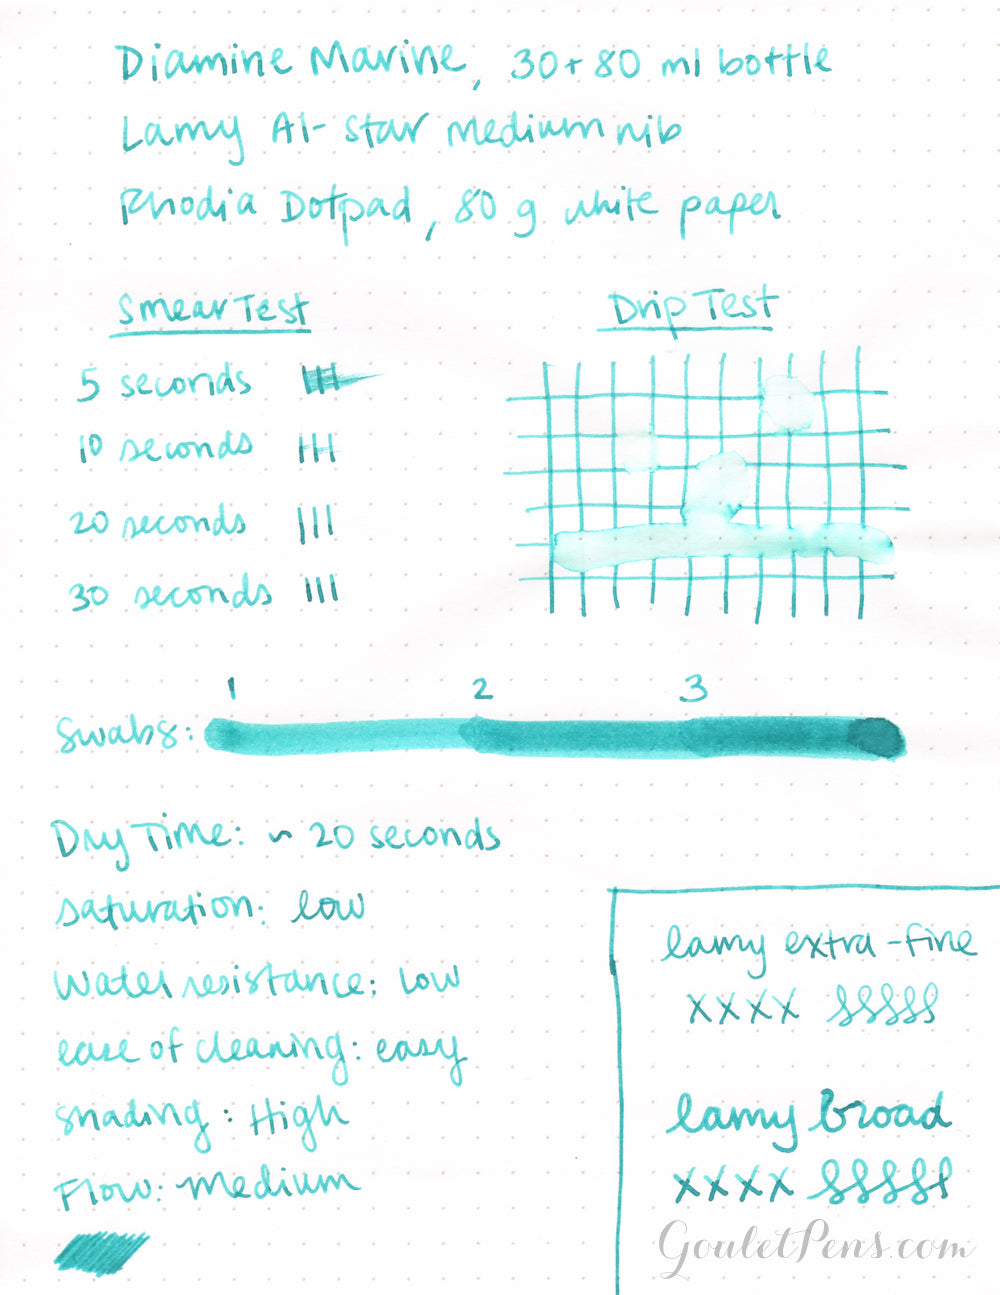 Diamine Marine, 30+80 ml bottle
Lamy Al-Star medium nib
Rhodia Dotpad, 80 g white paper
Smear Test
5 seconds
10 seconds
20 seconds
30 seconds
Drip Test
1 2 3
Swabs:
Dry Time: ~ 20 seconds
saturation: low
Water resistance: Low
ease of cleaning: easy
shading: High
Flow: medium
lamy extra-fine
xxxx
lamy broad
xxxx
GouletPens.com